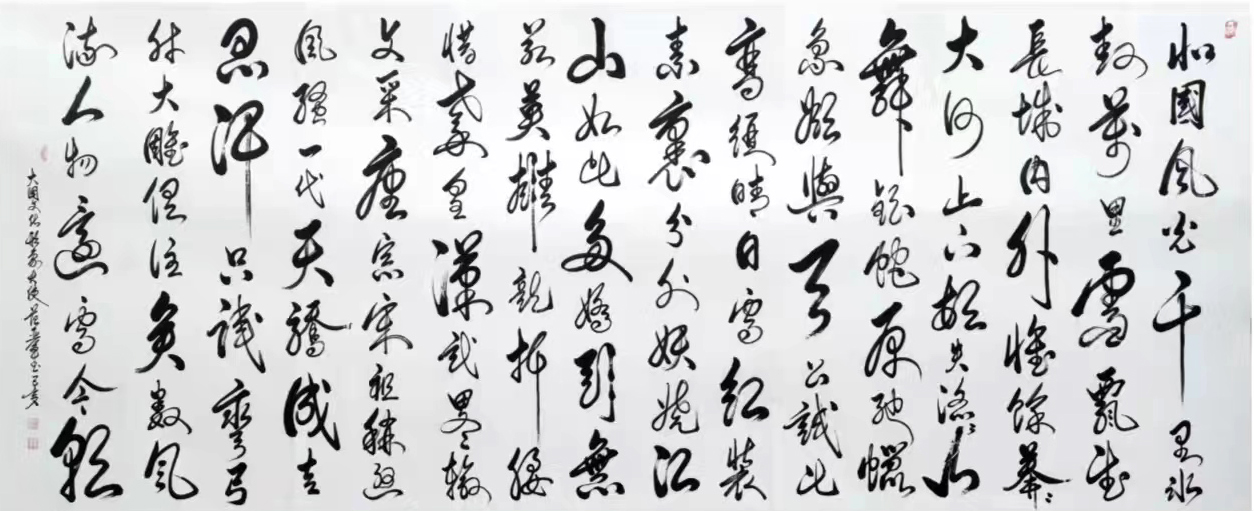 北國風光千里冰
封萬里雪飄望
長城内外惟餘莽々
大河上下頓失滔々山
舞銀蛇原馳蠟
象欲與天公試比
高須晴日看紅裝
素裹分外妖嬈江
山如此多嬌引無
數英雄競折腰
惜秦皇漢武畧輸
文采唐宗宋祖稍遜
風騷一代天驕成吉
思汗只識彎弓
射大雕俱往矣數風
流人物還看今朝
大國文化形象大使范